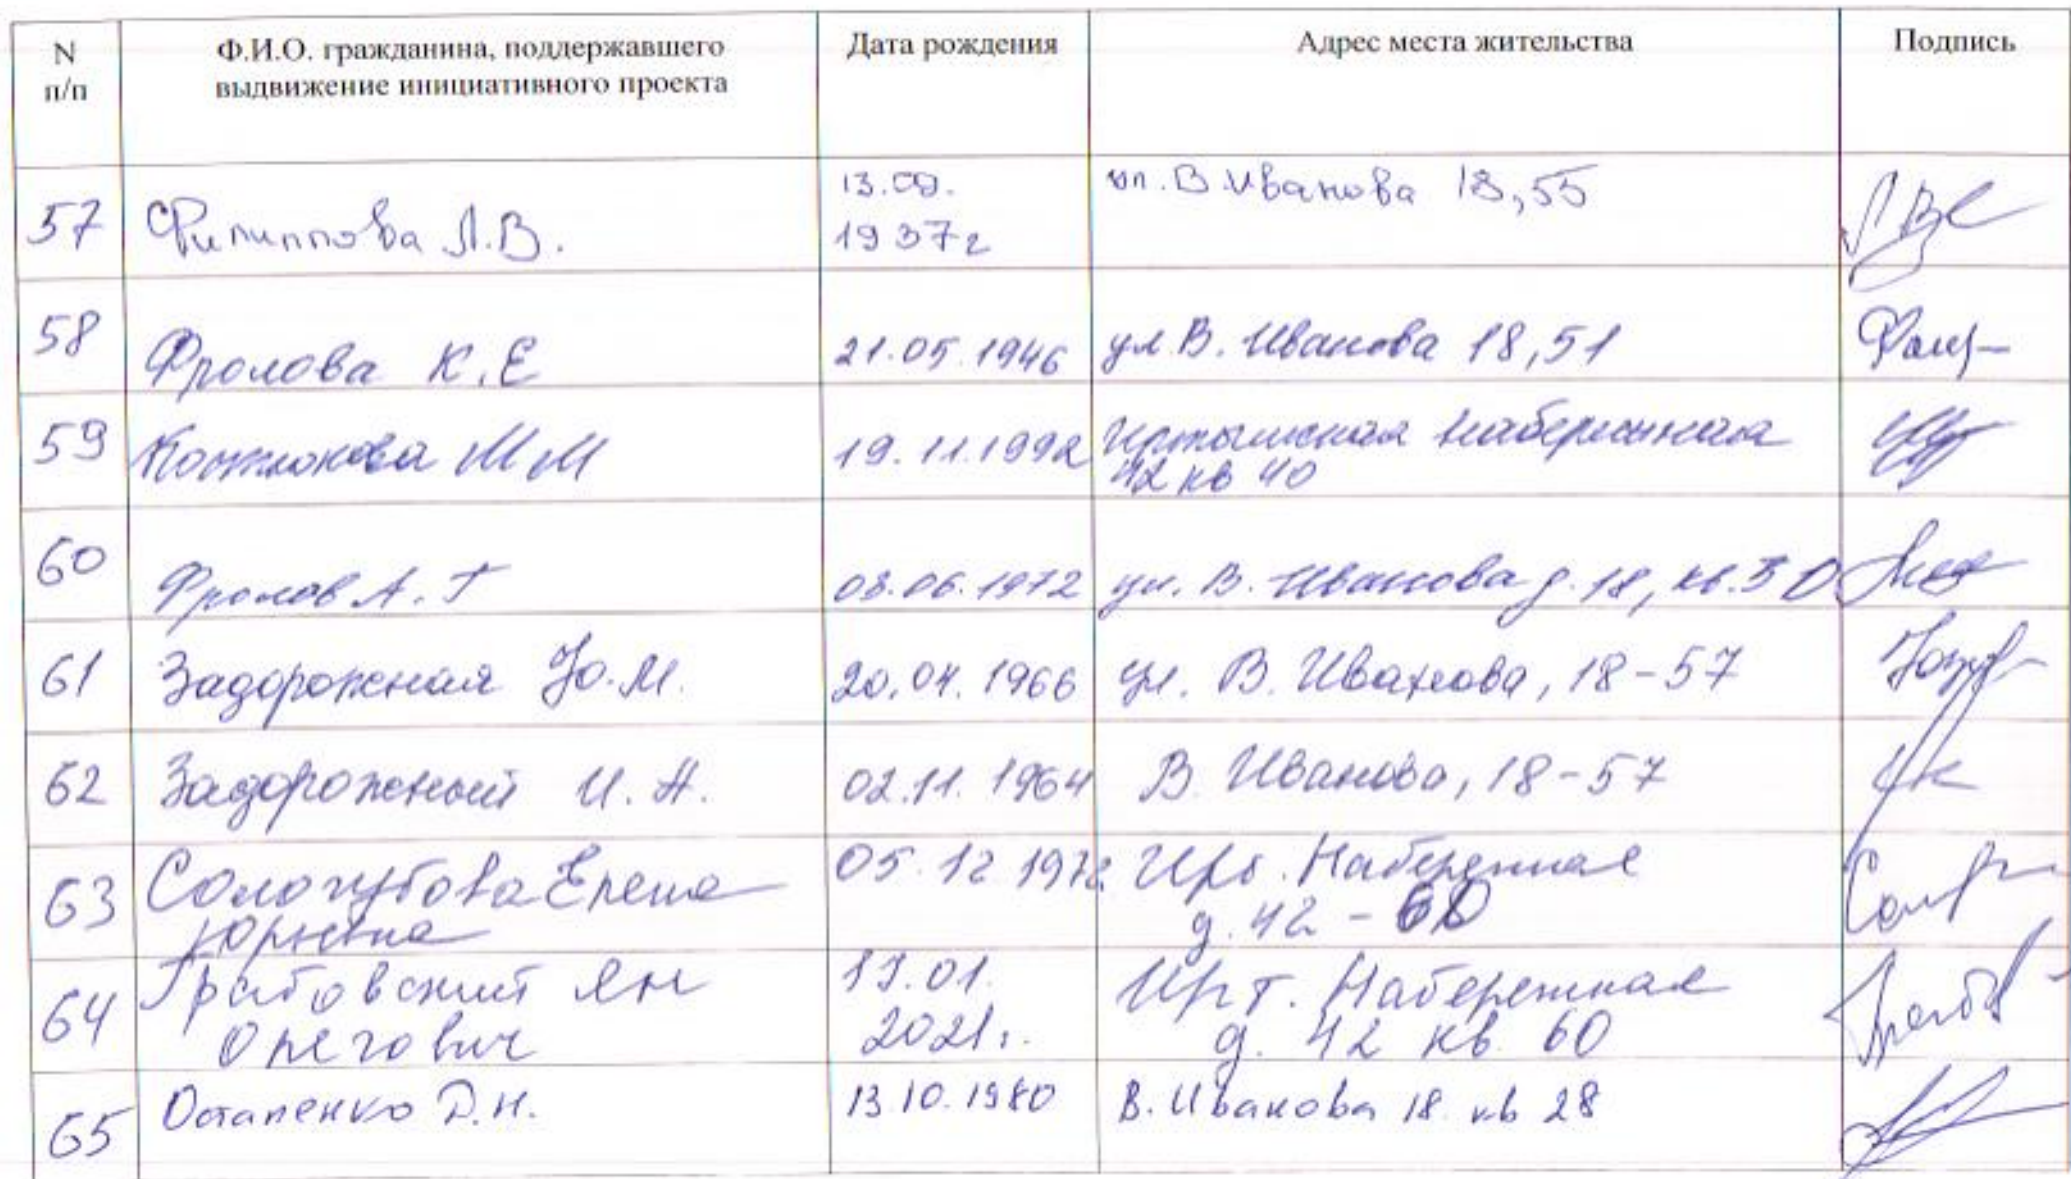 N
п/п
Ф.И.О. гражданина, поддержавшего
выдвижение инициативного проекта
Дата рождения
Адрес места жительства
Подпись
57
Филиппова Л.В.
13.09.
1937г
ул. В.Иванова 18,55
58
Фролова К.Е
21.05.1946
ул В. Иванова 18,51
59
Костюкова М М
19.11.1992
Иртышская набережная
42 кв 40
60
Фролов А.Г
08.06.1972
ул. В. Иванова д. 18, кв. 30
61
Задорожная Ю.М.
20.04.1966
ул. В. Иванова, 18-57
62
Задорожный И.А.
02.11.1964
В. Иванова, 18-57
63
Сологубова Елена
Юрьевна
05.12.1972
Ирт. Набережная
д. 42 - 60
64
Грабовский Ян
Олегович
2021г.
Ирт. Набережная
д. 42 кв. 60
65
Остапенко Д.Н.
13.10.1980
В. Иванова 18 кв 28